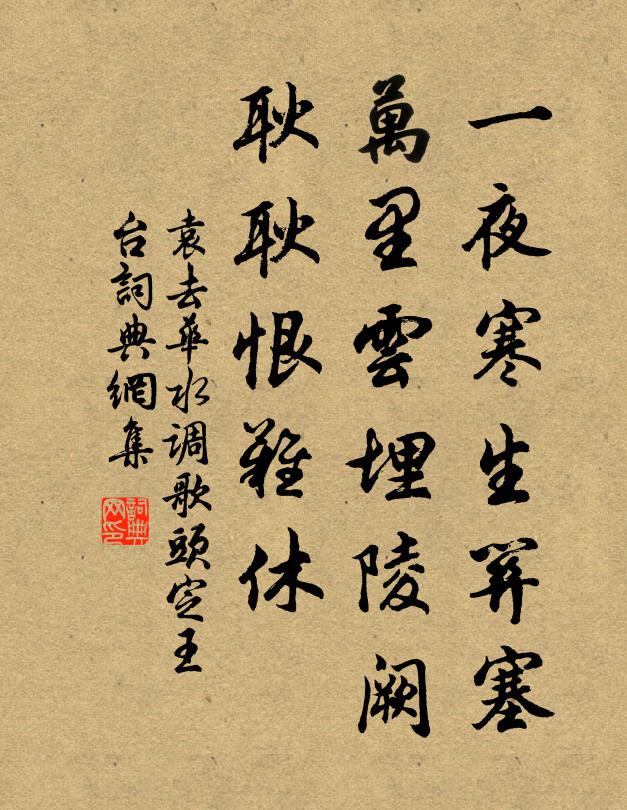 一夜寒生關塞
萬里雲埋陵闕
耿耿恨難休
袁去華水调歌頭定王
台詞典網集
詞典
网印